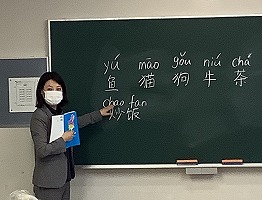 yú māo gǒu niú chá
鱼 猫 狗 牛 茶
chǎo fàn
炒饭